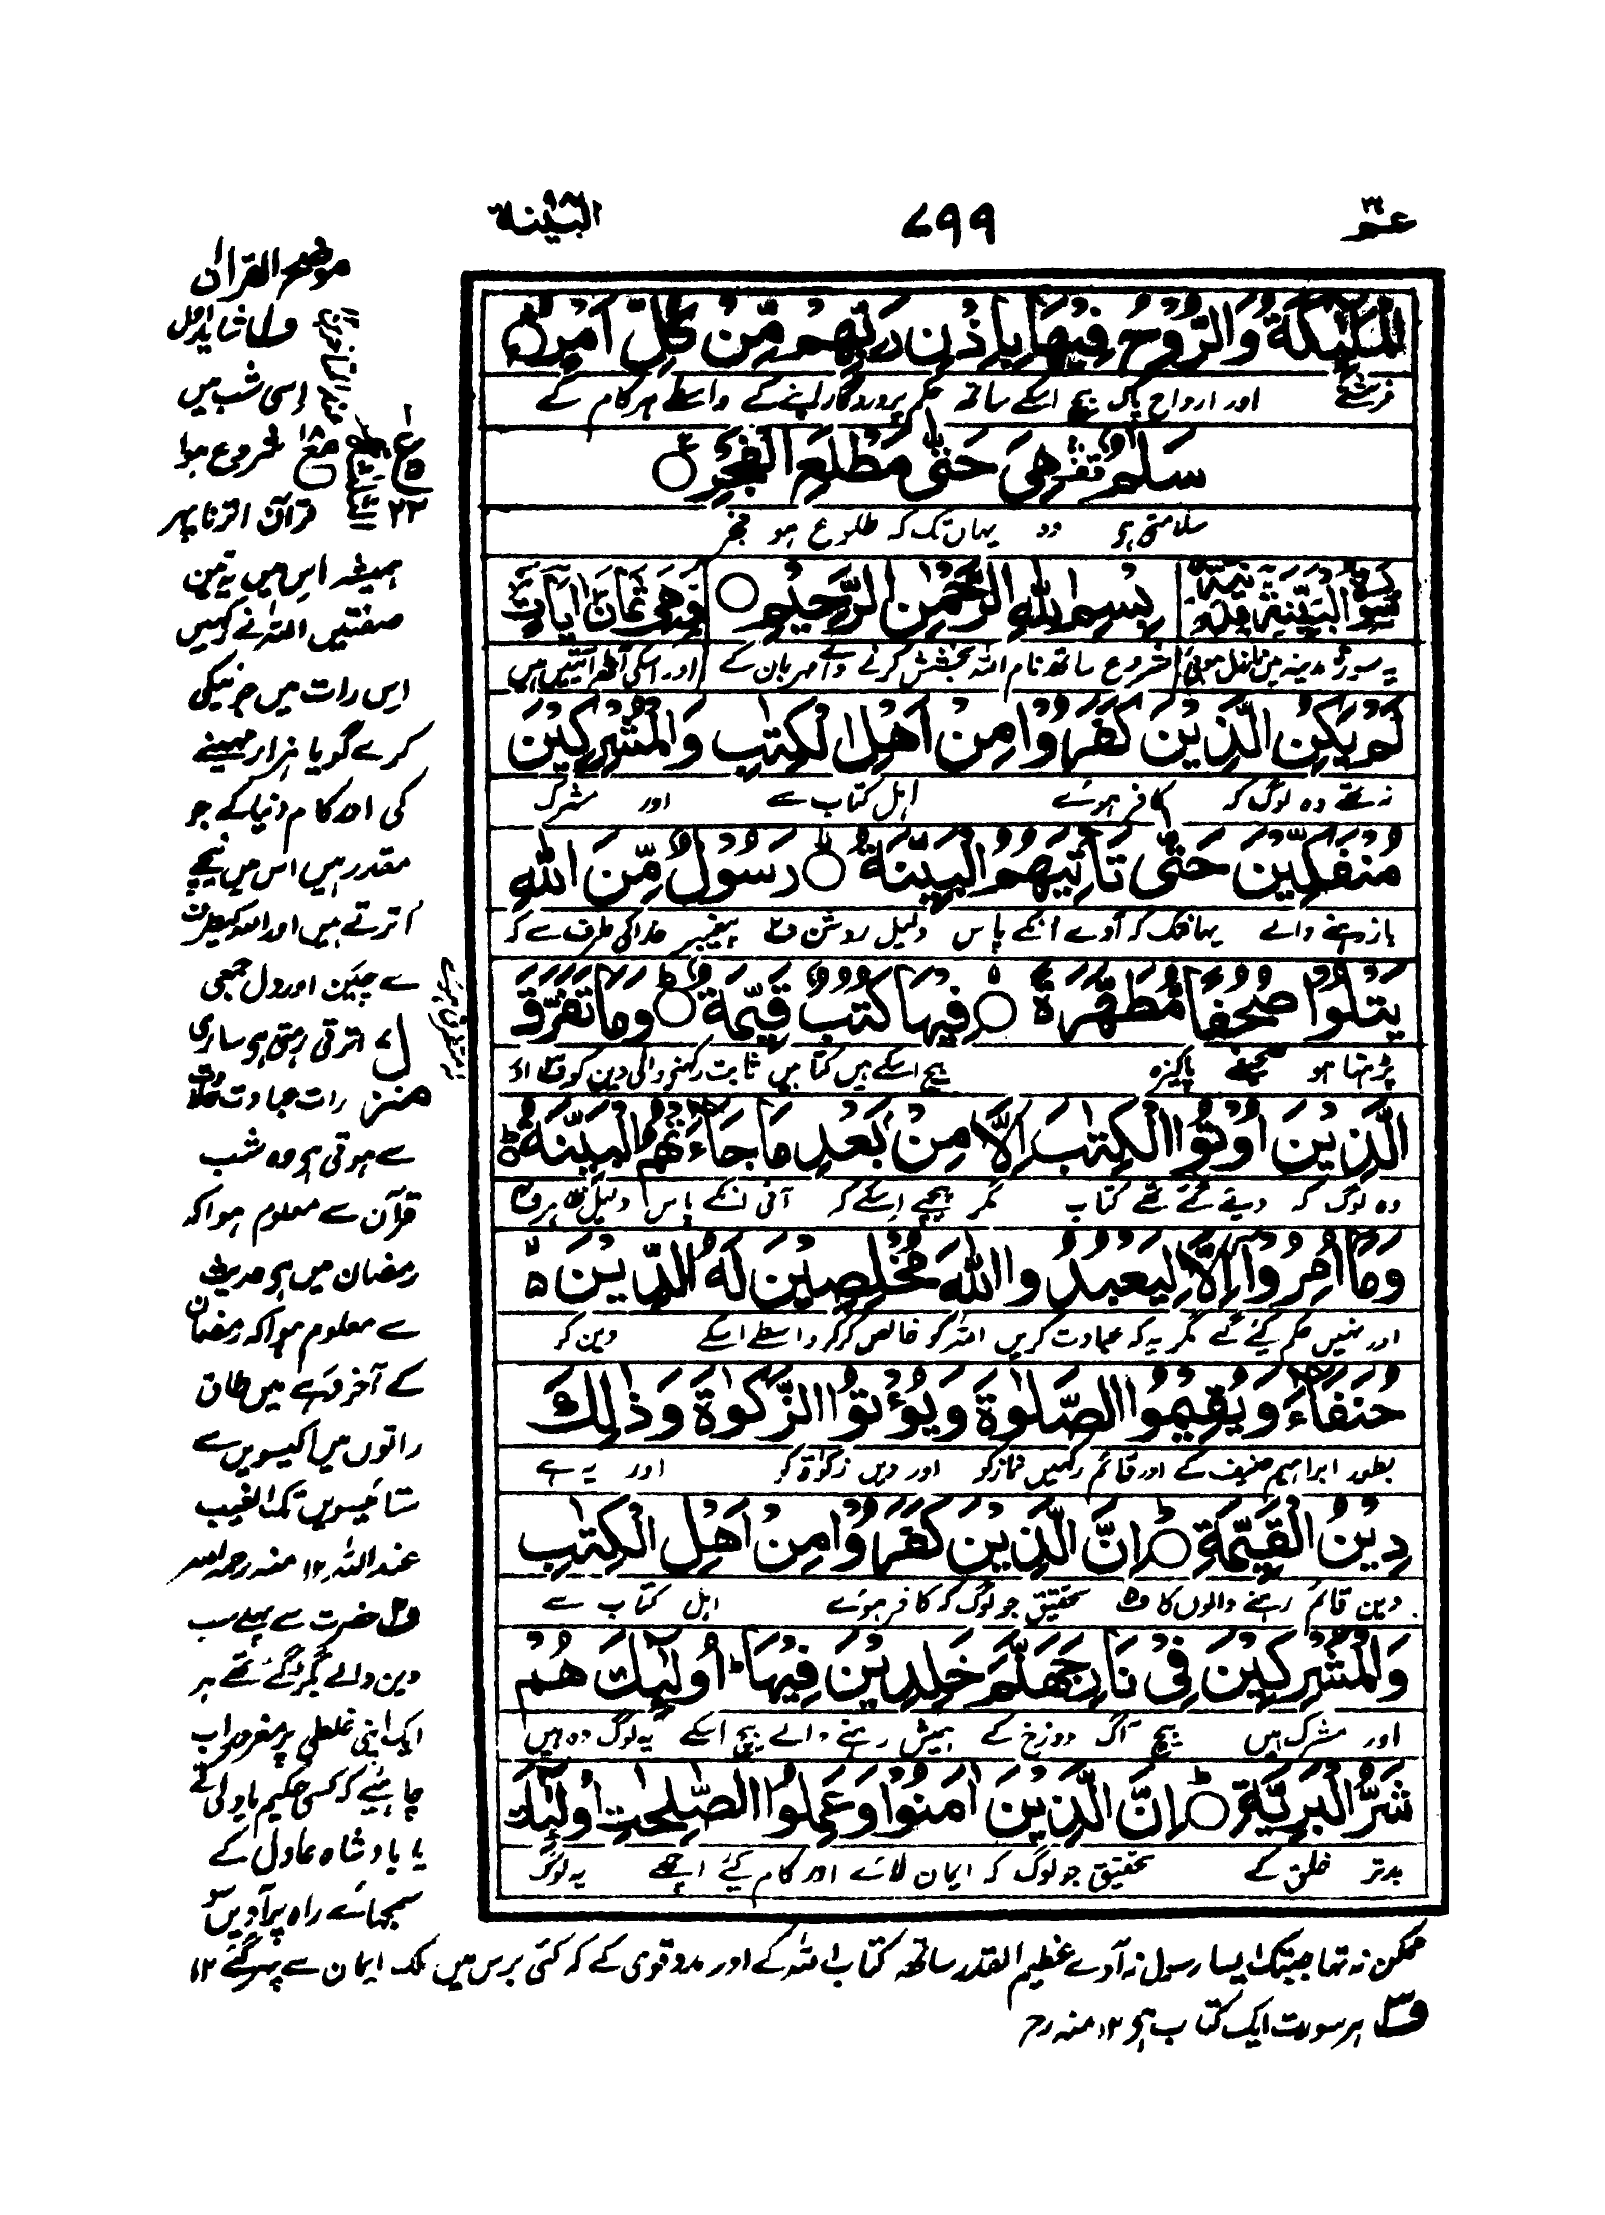 عمّ ۳۰
۷۹۹
البيّنة ۹۸
الْمَلٰٓئِكَةُ وَالرُّوْحُ فِيْهَا بِاِذْنِ رَبِّهِمْ مِّنْ كُلِّ اَمْرٍ ○
فرشتے اور ارواح پاک بیچ اسکے ساتھ حکم پروردگار اپنے کے واسطے ہر کام کے
سَلٰمٌ هِيَ حَتّٰى مَطْلَعِ الْفَجْرِ ○
سلامتی ہی وہ یہاں تک کہ طلوع ہو فجر
سُوْرَةُ الْبَيِّنَةِ مَدَنِيَّةٌ بِسْمِ اللّٰهِ الرَّحْمٰنِ الرَّحِيْمِ ○ وَهِيَ ثَمَانُ اٰيَاتٍ
یہ سورۃ مدینہ میں نازل ہوئی شروع ساتھ نام اللہ بخشش کرنے والے مہربان کے اور اسکی آٹھ آیتیں ہیں
لَمْ يَكُنِ الَّذِيْنَ كَفَرُوْا مِنْ اَهْلِ الْكِتٰبِ وَالْمُشْرِكِيْنَ
نہ تھے وہ لوگ کہ کافر ہوئے اہل کتاب سے اور مشرک
مُنْفَكِّيْنَ حَتّٰى تَاْتِيَهُمُ الْبَيِّنَةُ ○ رَسُوْلٌ مِّنَ اللّٰهِ
باز رہنے والے یہانتک کہ آوے انکے پاس دلیل روشن ف۲ پیغمبر خدا کی طرف سے کہ
يَتْلُوْا صُحُفًا مُّطَهَّرَةً ○ فِيْهَا كُتُبٌ قَيِّمَةٌ ○ وَمَا تَفَرَّقَ
پڑہتا ہو صحیفے پاکیزہ بیچ اسکے ہیں کتابیں ثابت رکھنے والی دین کو ف۳ اور
الَّذِيْنَ اُوْتُوا الْكِتٰبَ اِلَّا مِنْۢ بَعْدِ مَا جَآءَتْهُمُ الْبَيِّنَةُ
وہ لوگ کہ دیئے گئے تھے کتاب مگر پیچھے اسکے کہ آئی انکے پاس دلیل ظاہر
وَمَآ اُمِرُوْٓا اِلَّا لِيَعْبُدُوا اللّٰهَ مُخْلِصِيْنَ لَهُ الدِّيْنَ
اور نہیں حکم کیے گئے مگر یہ کہ عبادت کریں اللہ کو خالص کر کر واسطے اسکے دین کو
حُنَفَآءَ وَيُقِيْمُوا الصَّلٰوةَ وَيُؤْتُوا الزَّكٰوةَ وَذٰلِكَ
بطور ابراہیم حنیف کے اور قائم رکھیں نماز کو اور دیں زکوٰۃ کو اور یہ ہے
دِيْنُ الْقَيِّمَةِ ○ اِنَّ الَّذِيْنَ كَفَرُوْا مِنْ اَهْلِ الْكِتٰبِ
دین قائم رہنے والوں کا تحقیق جو لوگ کہ کافر ہوئے اہل کتاب سے
وَالْمُشْرِكِيْنَ فِيْ نَارِ جَهَنَّمَ خٰلِدِيْنَ فِيْهَا اُولٰٓئِكَ هُمْ
اور مشرک ہیں بیچ آگ دوزخ کے ہمیش رہنے والے بیچ اسکے یہ لوگ وہ ہیں
شَرُّ الْبَرِيَّةِ ○ اِنَّ الَّذِيْنَ اٰمَنُوْا وَعَمِلُوا الصّٰلِحٰتِ اُولٰٓئِكَ
بدتر خلق کے تحقیق جو لوگ کہ ایمان لائے اور کام کیے اچھے یہ لوگ
موضح القرآن
ف۱ شاید اول
اسی شب میں
شروع ہوا
قرآن اترنا پہر
ہمیشہ اس میں یہ تین
صفتیں اللہ نے کہیں
اس رات میں جو نیکی
کرے گویا ہزار مہینے
کی اور کام دنیا کے جو
مقدر ہیں اس میں نیچے
اترتے ہیں اور اللہ کیطرف
سے چین اور دل جمعی
اترتی رہتی ہی ساری
منزل
رات عبادت
سے ہوتی ہی وہ شب
قرآن سے معلوم ہوا کہ
رمضان میں ہی حدیث
سے معلوم ہوا کہ رمضان
کے آخر دہے میں طاق
راتوں میں اکیسویں سے
ستائیسویں تک الغیب
عند اللہ ۱۲ منہ رحمہ اللہ
ف۲ حضرت سے پہلے سب
دین والے بگڑ گئے تھے ہر
ایک اپنی غلطی پر مغرور اب
چاہیئے کہ کسی حکیم یا ولی کے
یا بادشاہ عادل کے
سمجہائے راہ پر آویں سو
ممکن نہ تہا جبتک ایسا رسول نہ آوے عظیم القدر ساتھ کتاب اللہ کے اور مدد قوی کے کہ کئی برس میں ملک ایمان سے بہر گئے ۱۲
ف۳ ہر سورت ایک کتاب ہی ۱۲ منہ رح